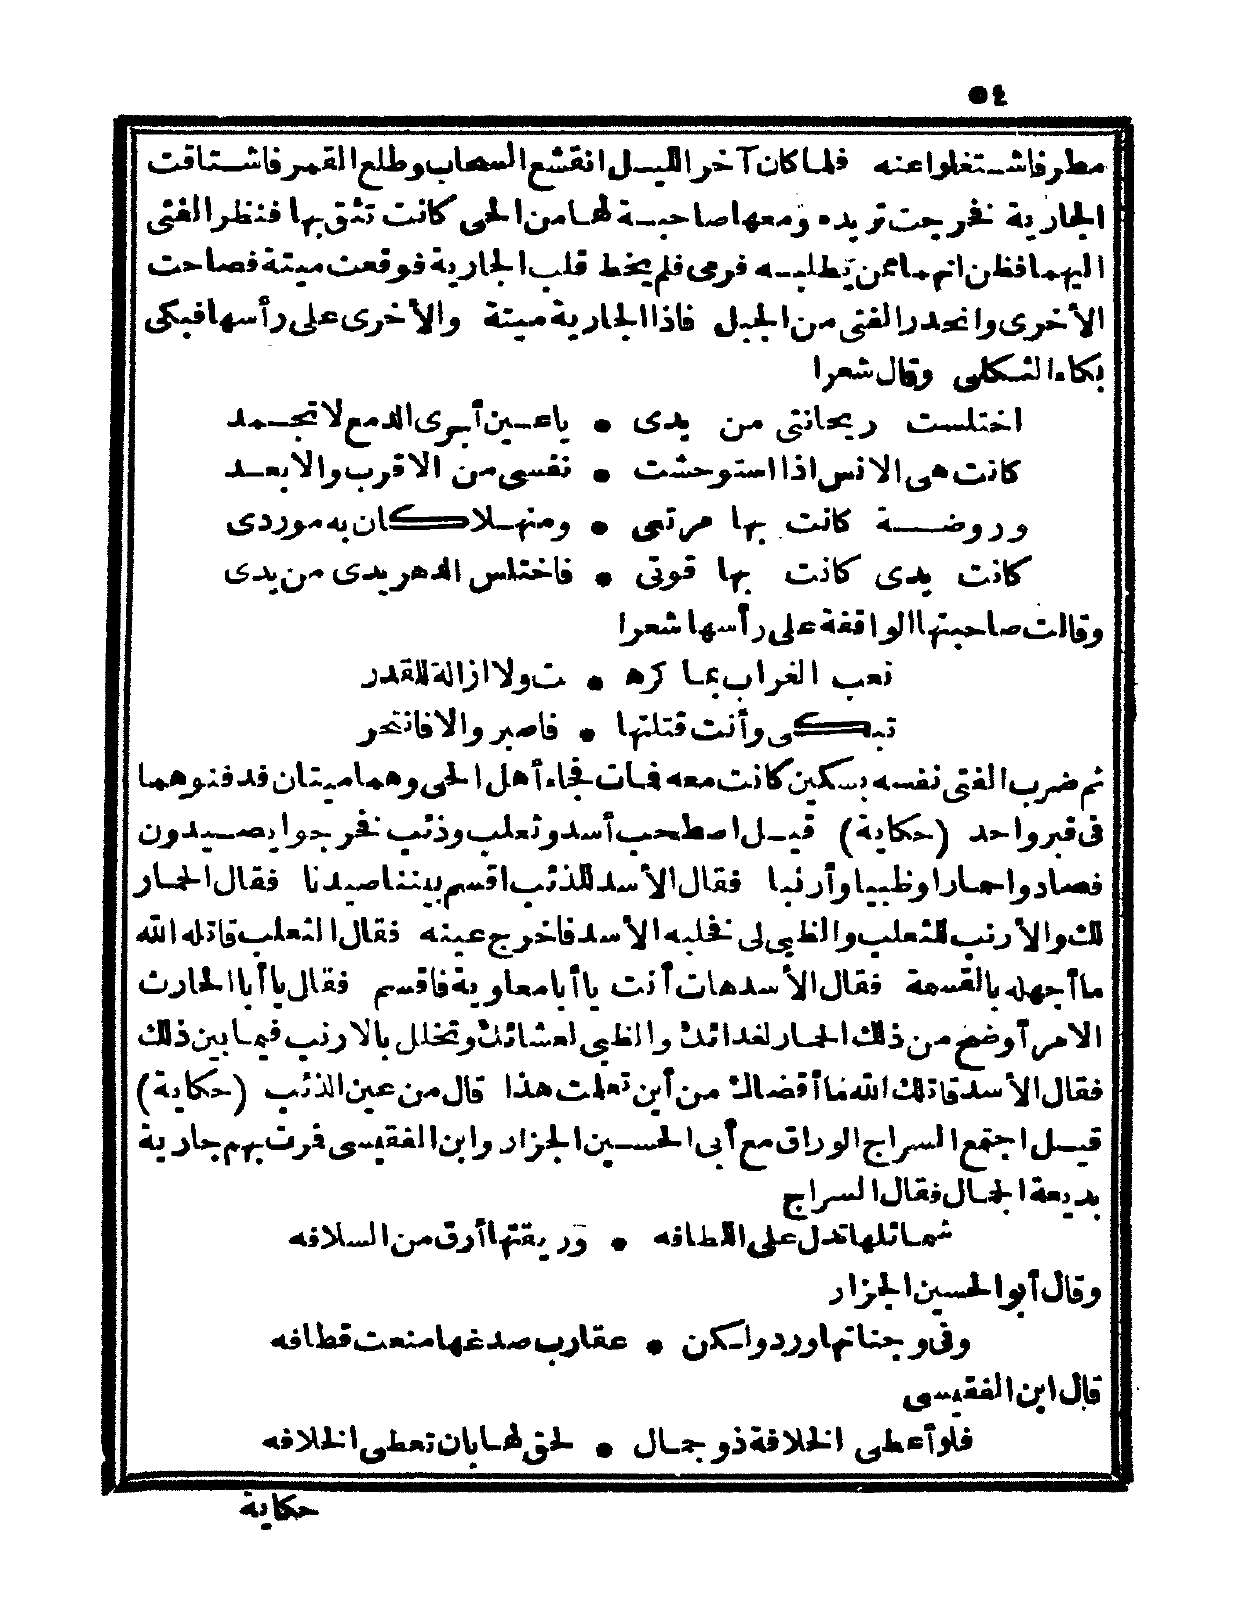 ٥٤
مطر فاشتغلوا عنه فلما كان آخر الليل انقشع السحاب وطلع القمر فاشتاقت
الجارية فخرجت تريده ومعها صاحبة لها من الحى كانت تثق بها فنظر الفتى
اليهما فظن انهما ممن يطلبه فرمى فلم يخط قلب الجارية فوقعت ميتة فصاحت
الأخرى وانحدر الفتى من الجبل فاذا الجارية ميتة والأخرى على رأسها فبكى
بكاء الثكلى وقال شعرا
اختلست ريحانتى من يدى • يا عين أبرى الدمع لا تجمد
كانت هى الانس اذا استوحشت • نفسى من الاقرب والابعد
وروضة كانت بها مرتعى • ومنهلا كان به موردى
كانت يدى كانت بها قوتى • فاختلس الدهر يدى من يدى
وقالت صاحبتها الواقفة على رأسها شعرا
نعب الغراب بما كره • ت ولا ازالة للقدر
تبكى وأنت قتلتها • فاصبر والا فانتحر
ثم ضرب الفتى نفسه بسكين كانت معه فمات فجاء أهل الحى وهما ميتان فدفنوهما
فى قبر واحد (حكاية) قيل اصطحب أسد وثعلب وذئب فخرجوا يصيدون
فصادوا حمارا وظبيا وأرنبا فقال الأسد للذئب اقسم بيننا صيدنا فقال الحمار
لك والأرنب للثعلب والظبى لى فخلبه الأسد فاخرج عينه فقال الثعلب قاتله الله
ما أجهله بالقسمة فقال الأسد هات أنت يا أبا معاوية فاقسم فقال يا أبا الحارث
الامر أوضح من ذلك الحمار لغدائك والظبى لعشائك وتخلل بالارنب فيما بين ذلك
فقال الأسد قاتلك الله ما أقضاك من أين تعلمت هذا قال من عين الذئب (حكاية)
قيل اجتمع السراج الوراق مع أبى الحسين الجزار وابن الفقيسى فمرت بهم جارية
بديعة الجمال فقال السراج
شمائلها تدل على اللطافه • وريقتها أرق من السلافه
وقال أبو الحسين الجزار
وفى وجناتها ورد ولكن • عقارب صدغها منعت قطافه
قال ابن الفقيسى
فلو أعطى الخلافة ذو جمال • لحق لها بان تعطى الخلافه
حكاية